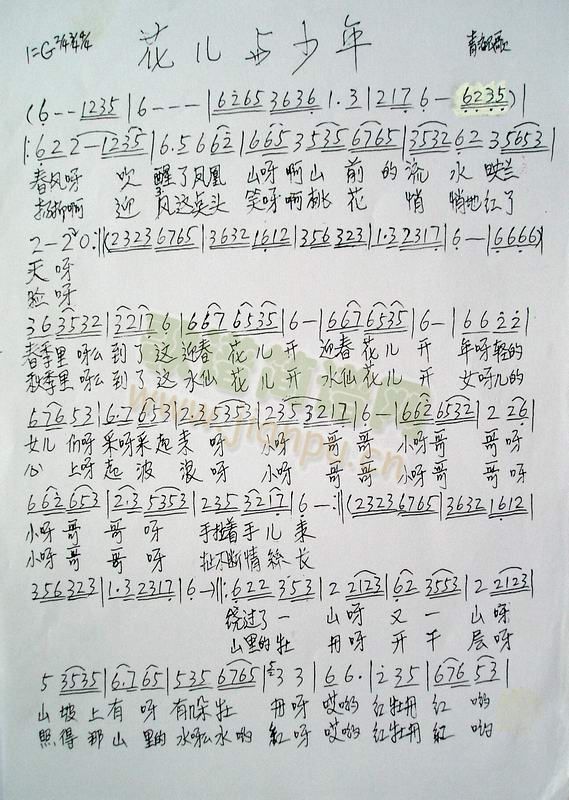 花儿与少年
1=G 2/4 3/4 4/4
(6 - - 1235 | 6 - - - | 6265 3636 | 1·3 | 217 6 - 6235) |
|: 622 - 1235 | 6·5 662 | 665 3535 6765 | 3532 62 35653 |
春风呀 吹 醒了凤凰 山呀啊山 前 的流 水 映兰
杨柳啊 迎 风这点头 笑呀啊桃 花 悄 悄地红了
2 - 2 0 :|| (2323 6765 | 3632 1612 | 356 323 | 1·3 2317 | 6 - | 6666)
天 呀
脸 呀
36 3532 | 3217 6 | 667 6535 | 6 - | 667 6535 | 6 - | 66 22 |
春季里 呀么 到了这 迎春 花儿开 迎春 花儿开 年呀轻的
秋季里 呀么 到了这 水仙 花儿开 水仙 花儿开 女呀儿的
676 53 | 6·7 653 | 225 3553 | 235 3217 | 6 - | 662 6532 | 2 26 |
女儿 们呀 采呀采起来 呀 小呀 哥 哥 小呀哥 哥呀
心 上呀 起 波 浪呀 小呀 哥 哥 小呀哥 哥呀
662 653 | 2·3 5353 | 235 3217 | 6 - :|| (2323 6765 | 3632 1612 |
小呀 哥 哥 呀 手拉着手儿 来
小呀 哥 哥 呀 扯不断情絲 长
356 323 | 1·3 2317 | 6 -) ||: 622 353 | 2 2123 | 62 3553 | 2 2123 |
绕过了一 山呀 又 一 山呀
山里的牡 丹呀 开 千 层呀
5 3535 | 6·7 65 | 535 6765 | 3 3 | 6 6· | 2 35 | 676 53 |
山 坡上有 呀 有朵牡 丹呀 哎哟 红牡丹 红 哟
照 得那山 里的 水呀么水哟 紅呀 哎哟 红牡丹 紅 哟
www.jianpu.cn